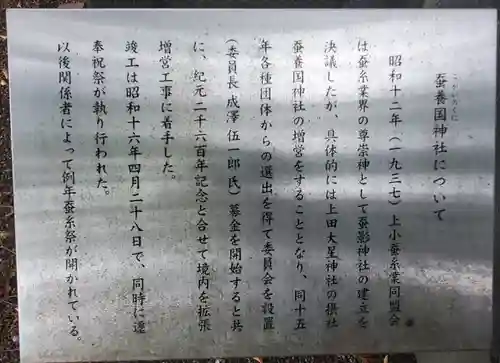 蚕養国神社について
こかいくに
昭和十二年（一九三七）上小蚕糸業同盟会
は蚕糸業界の尊崇神として蚕影神社の建立を
決議したが、具体的には上田大星神社の摂社
蚕養国神社の増営をすることとなり、同十五
年各種団体からの選出を得て委員会を設置
（委員長 成澤 伍一郎 氏）募金を開始すると共
に、紀元二千六百年記念と合せて境内を拡張
増営工事に着手した。
竣工は昭和十六年四月二十八日で、同時に遷
奉祝祭が執り行われた。
以後関係者によって例年蚕糸祭が開かれている。